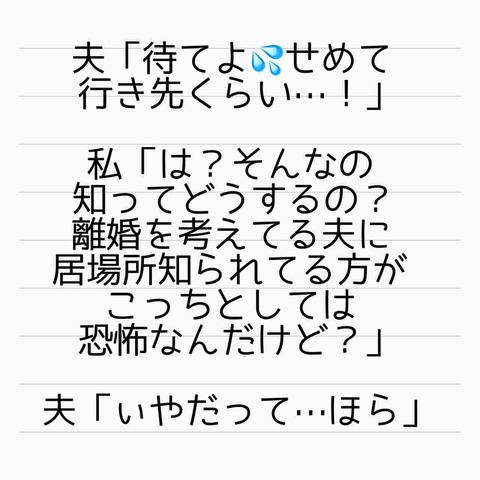 夫「待てよ💦せめて
行き先くらい…！」
私「は？そんなの
知ってどうするの？
離婚を考えてる夫に
居場所知られてる方が
こっちとしては
恐怖なんだけど？」
夫「いやだって…ほら」